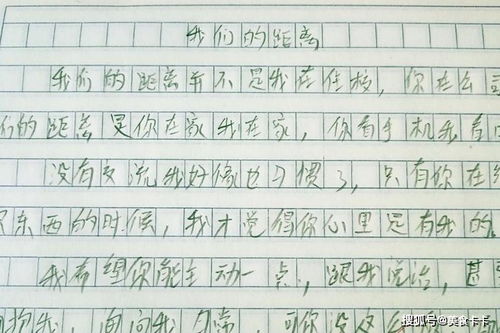 我们的距离
我们的距离并不是我在住校，你在公司
们的距离是你在家我在家，你看手机我看电
没有交流我好像也习惯了，只有你在给
东西的时候，我才觉得你心里是有我的
我希望你能主动一点，跟我说话，甚
抱我，问问我
搜狐号@美食卡卡